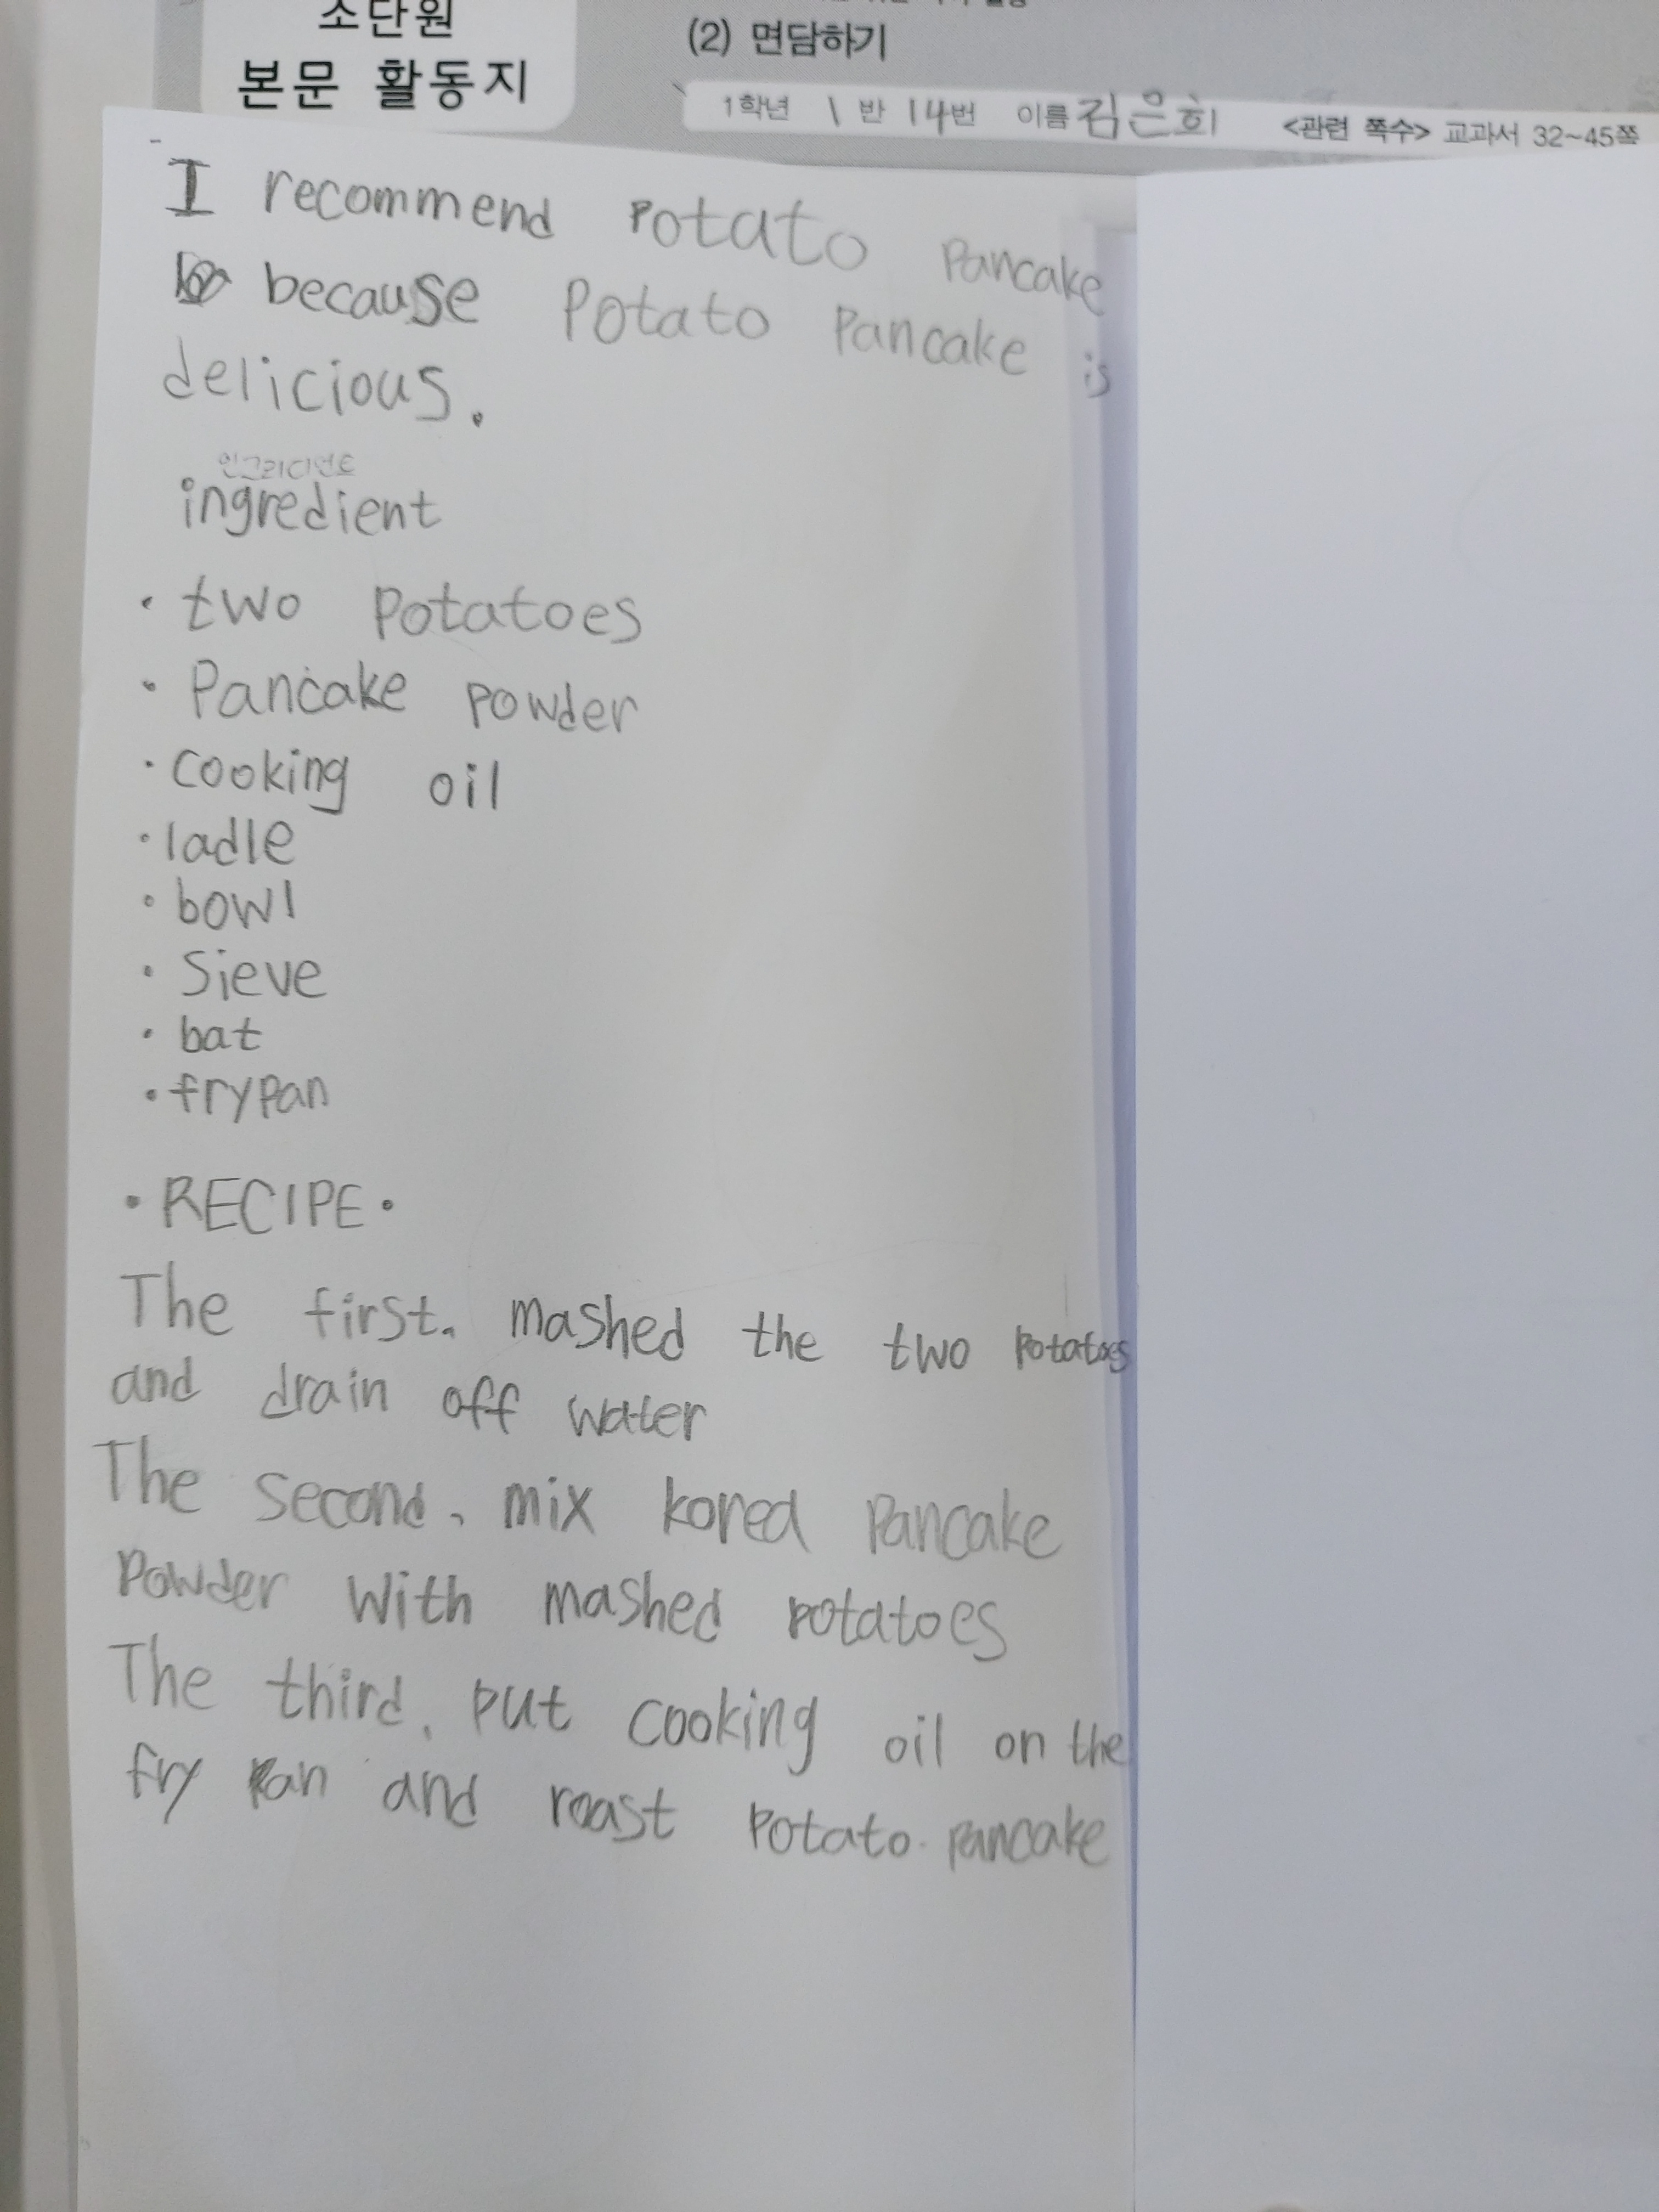 소단원
본문 활동지
(2) 면담하기
1학년 1 반 14번 이름 김은희 <관련 쪽수> 교과서 32~45쪽
I recommend Potato Pancake
because Potato Pancake is
delicious.
인그리디언트
ingredient
· two Potatoes
· Pancake Powder
· cooking oil
· ladle
· bowl
· Sieve
· bat
· frypan
· RECIPE ·
The first. mashed the two Potatoes
and drain off water
The second, mix kored Pancake
Powder with mashed potatoes
The third, put cooking oil on the
fry Pan and roast Potato pancake